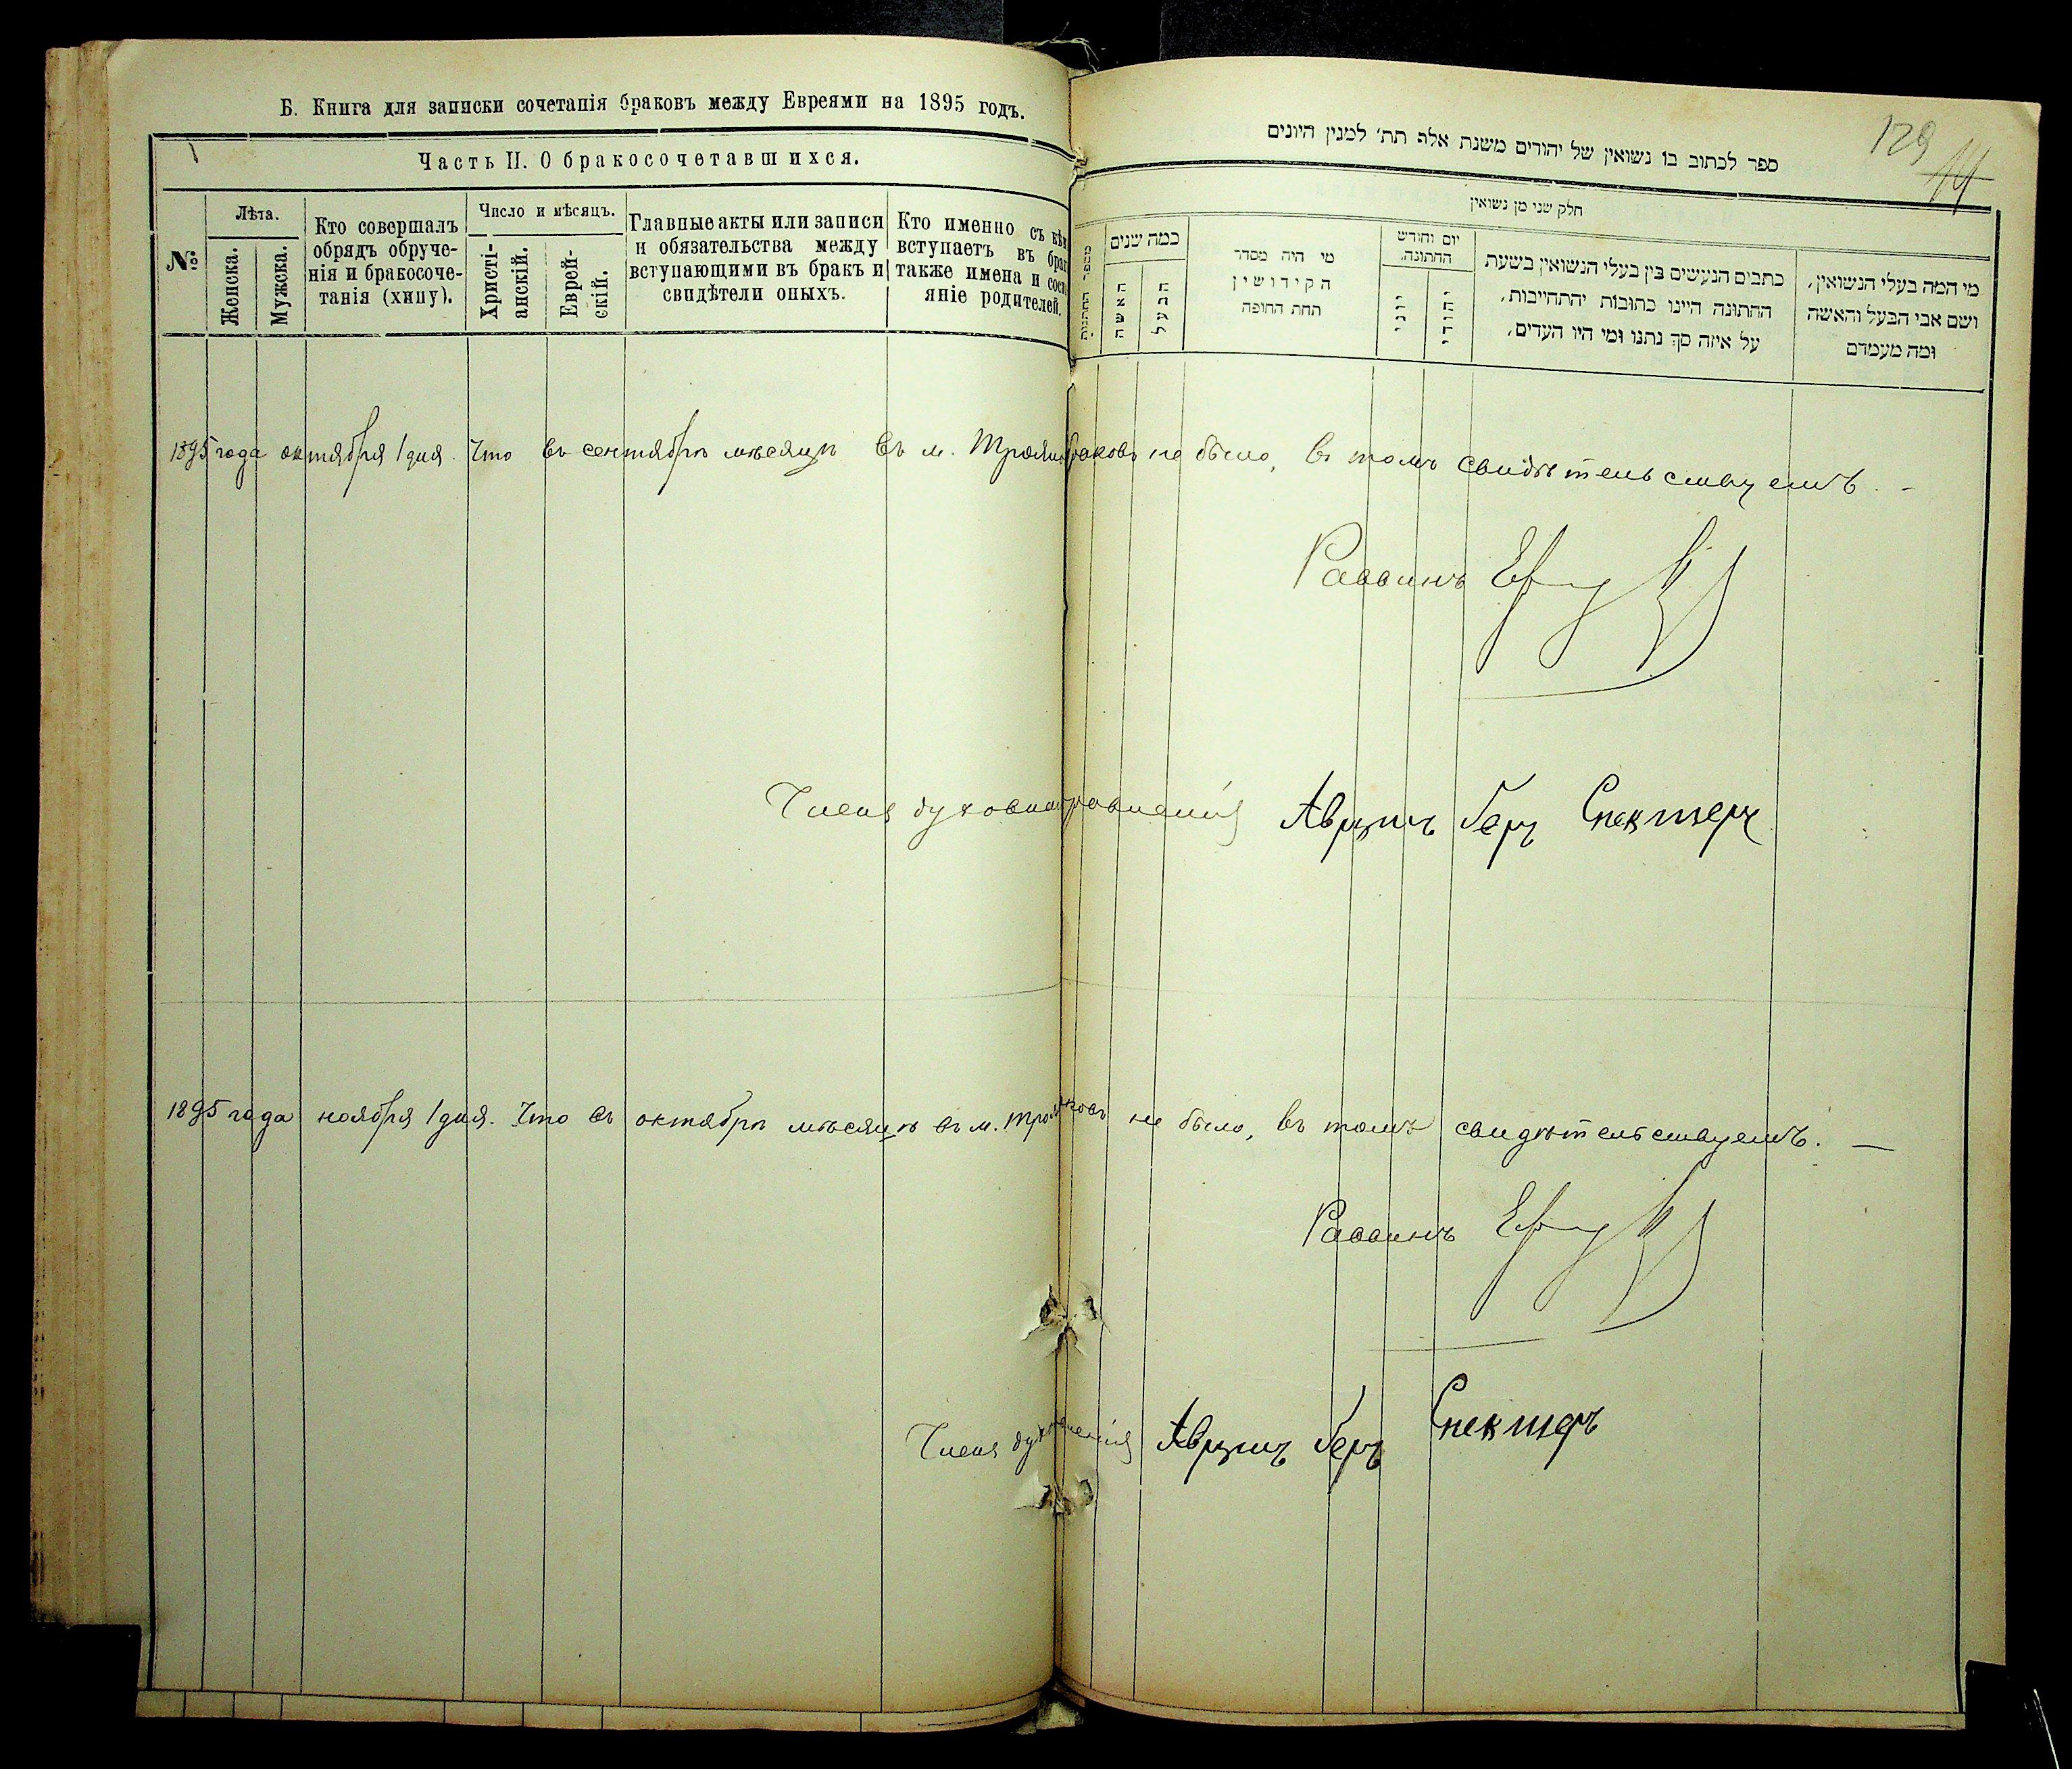 Б. Книга для записки сочетанія браковъ между Евреями на 1895 годъ.
Часть II. О бракосочетавшихся.
№
Лѣта.
Женска.
Мужска.
Кто совершалъ
обрядъ обруче-
нія и бракосоче-
танія (хипу).
Число и мѣсяцъ.
Христі-
анскій.
Еврей-
скій.
Главные акты или записи
и обязательства между
вступающими въ бракъ и
свидѣтели оныхъ.
Кто именно съ кѣм
вступаетъ въ брак
также имена и сост
яніе родителей.
129
14
ספר לכתוב בו נשואין של יהודים משנת אלף תת׳ למנין היונים
חלק שני מן נשואין
כמה שנים
האשה
הבעל
מי היה מסדר
הקידושין
תחת החופה
יום וחודש
החתונה.
יוני
יהודי
כתבים הנעשים בין בעלי הנשואין בשעת
החתונה היינו כתובות יהתחייבות,
על איזה סך נתנו ומי היו העדים,
מי המה בעלי הנשואין,
ושם אבי הבעל והאשה
ומה מעמדם
1895 года октября 1 дня. Что въ сентябрѣ мѣсяцѣ въ м. Троян браковъ не было, въ томъ свидѣтельствуемъ. -
Раввинъ
Члена духовн правленія Аврумъ Беръ Спекторъ
1895 года ноября 1 дня. Что въ октябрѣ мѣсяцѣ въ м. Троя ковъ не было, въ томъ свидѣтельствуемъ. —
Раввинъ
Члена дух ленія Аврумъ Беръ Спекторъ